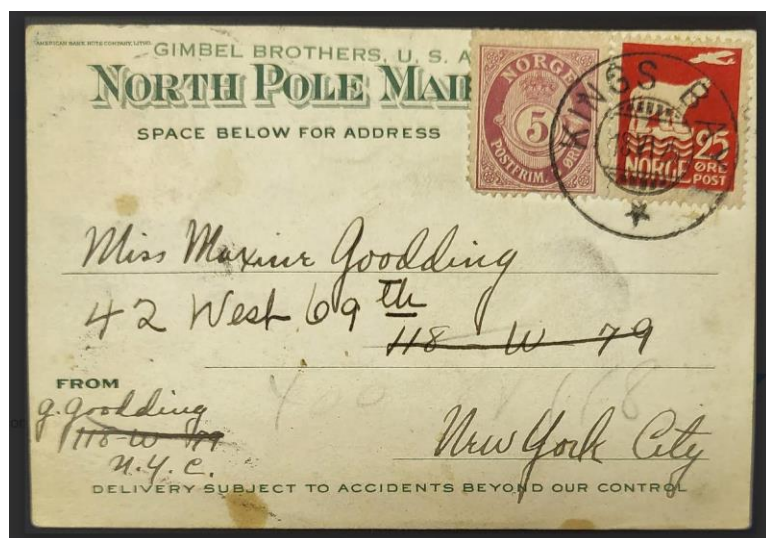 AMERICAN BANK NOTE COMPANY, LITHO.
GIMBEL BROTHERS, U. S. A
NORTH POLE MAIL
SPACE BELOW FOR ADDRESS
NORGE
5
POSTFRIM. ØRE
KINGS BAY
25
NORGE ØRE
POST
Miss Maxine Goodding
42 West 69th
118 W 79
FROM
G. Goodding
118-W 79
N.Y.C.
New York City
DELIVERY SUBJECT TO ACCIDENTS BEYOND OUR CONTROL